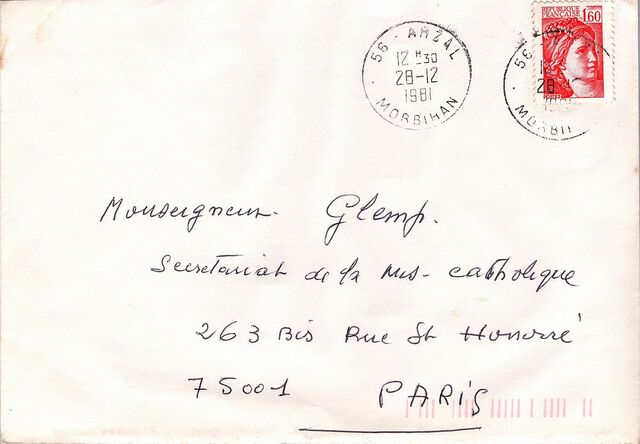 56 - ARZAL
12 H 30
28-12
1981
MORBIHAN
REPUBLIQUE
FRANCAISE
1,60
56
12
28
MORBIH
Monseigneur Glemp.
Secretariat de la Mis- catholique
263 Bis Rue St Honorré
75001 PARIS